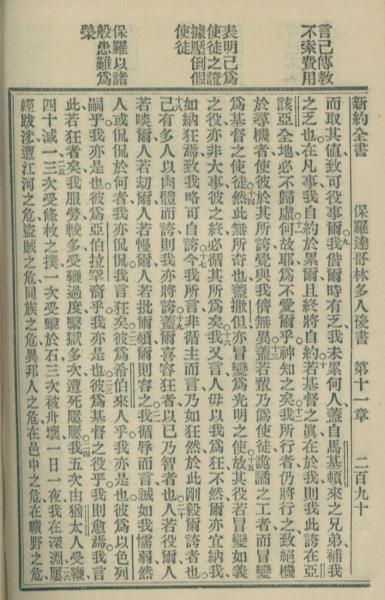 言己傳教
不索費用
表明己爲
使徒之證
據壓倒假
使徒
保羅以諸
般患難爲
榮
新約全書　保羅達哥林多人後書　第十一章　二百九十
而取其値致可役事爾我偕爾時有乏我未累何人蓋自馬基頓來之兄弟補我
之乏也在凡事我自約於累爾且終將自約若基督之眞在於我則我此誇在亞
該亞全地必不歸虛何故耶爲不愛爾乎神知之矣我所行者仍將行之致絕機
於尋機者使彼於其所誇覺與我儕無異蓋若輩乃僞使徒詭譎之工者而冒變
爲基督之使徒然此無所奇也蓋撒但亦冒變爲光明之使故其役若冒變如義
之役亦非大事彼之終必循其所爲矣我又言人毋以我爲狂不然爾亦宜納我
如納狂焉致我略可自誇今我所言非循主而言乃如狂然於此剛毅爾誇者也
己有多人以肉體而誇則我亦將誇蓋爾喜容狂者以己乃智者也人若役爾人
若啖爾人若刧爾人若慢爾人若批爾頰爾則容之我循辱而言誠如我懦弱然
人或侃侃於何者我亦侃侃我言狂矣彼爲希伯來人乎我亦是也彼爲以色列
嗣乎我亦是也彼爲亞伯拉罕裔乎我亦是也彼爲基督之役乎我則愈焉我言
此若狂者矣我服勞較多受鞭過度繫獄多次遭死屢屢我五次由猶太人受鞭
四十減一三次受條杖之撲一次受擊於石三次被舟壞一日一夜我在深淵屢
經跋涉遭江河之危盜賊之危同族之危異邦人之危在邑中之危在曠野之危